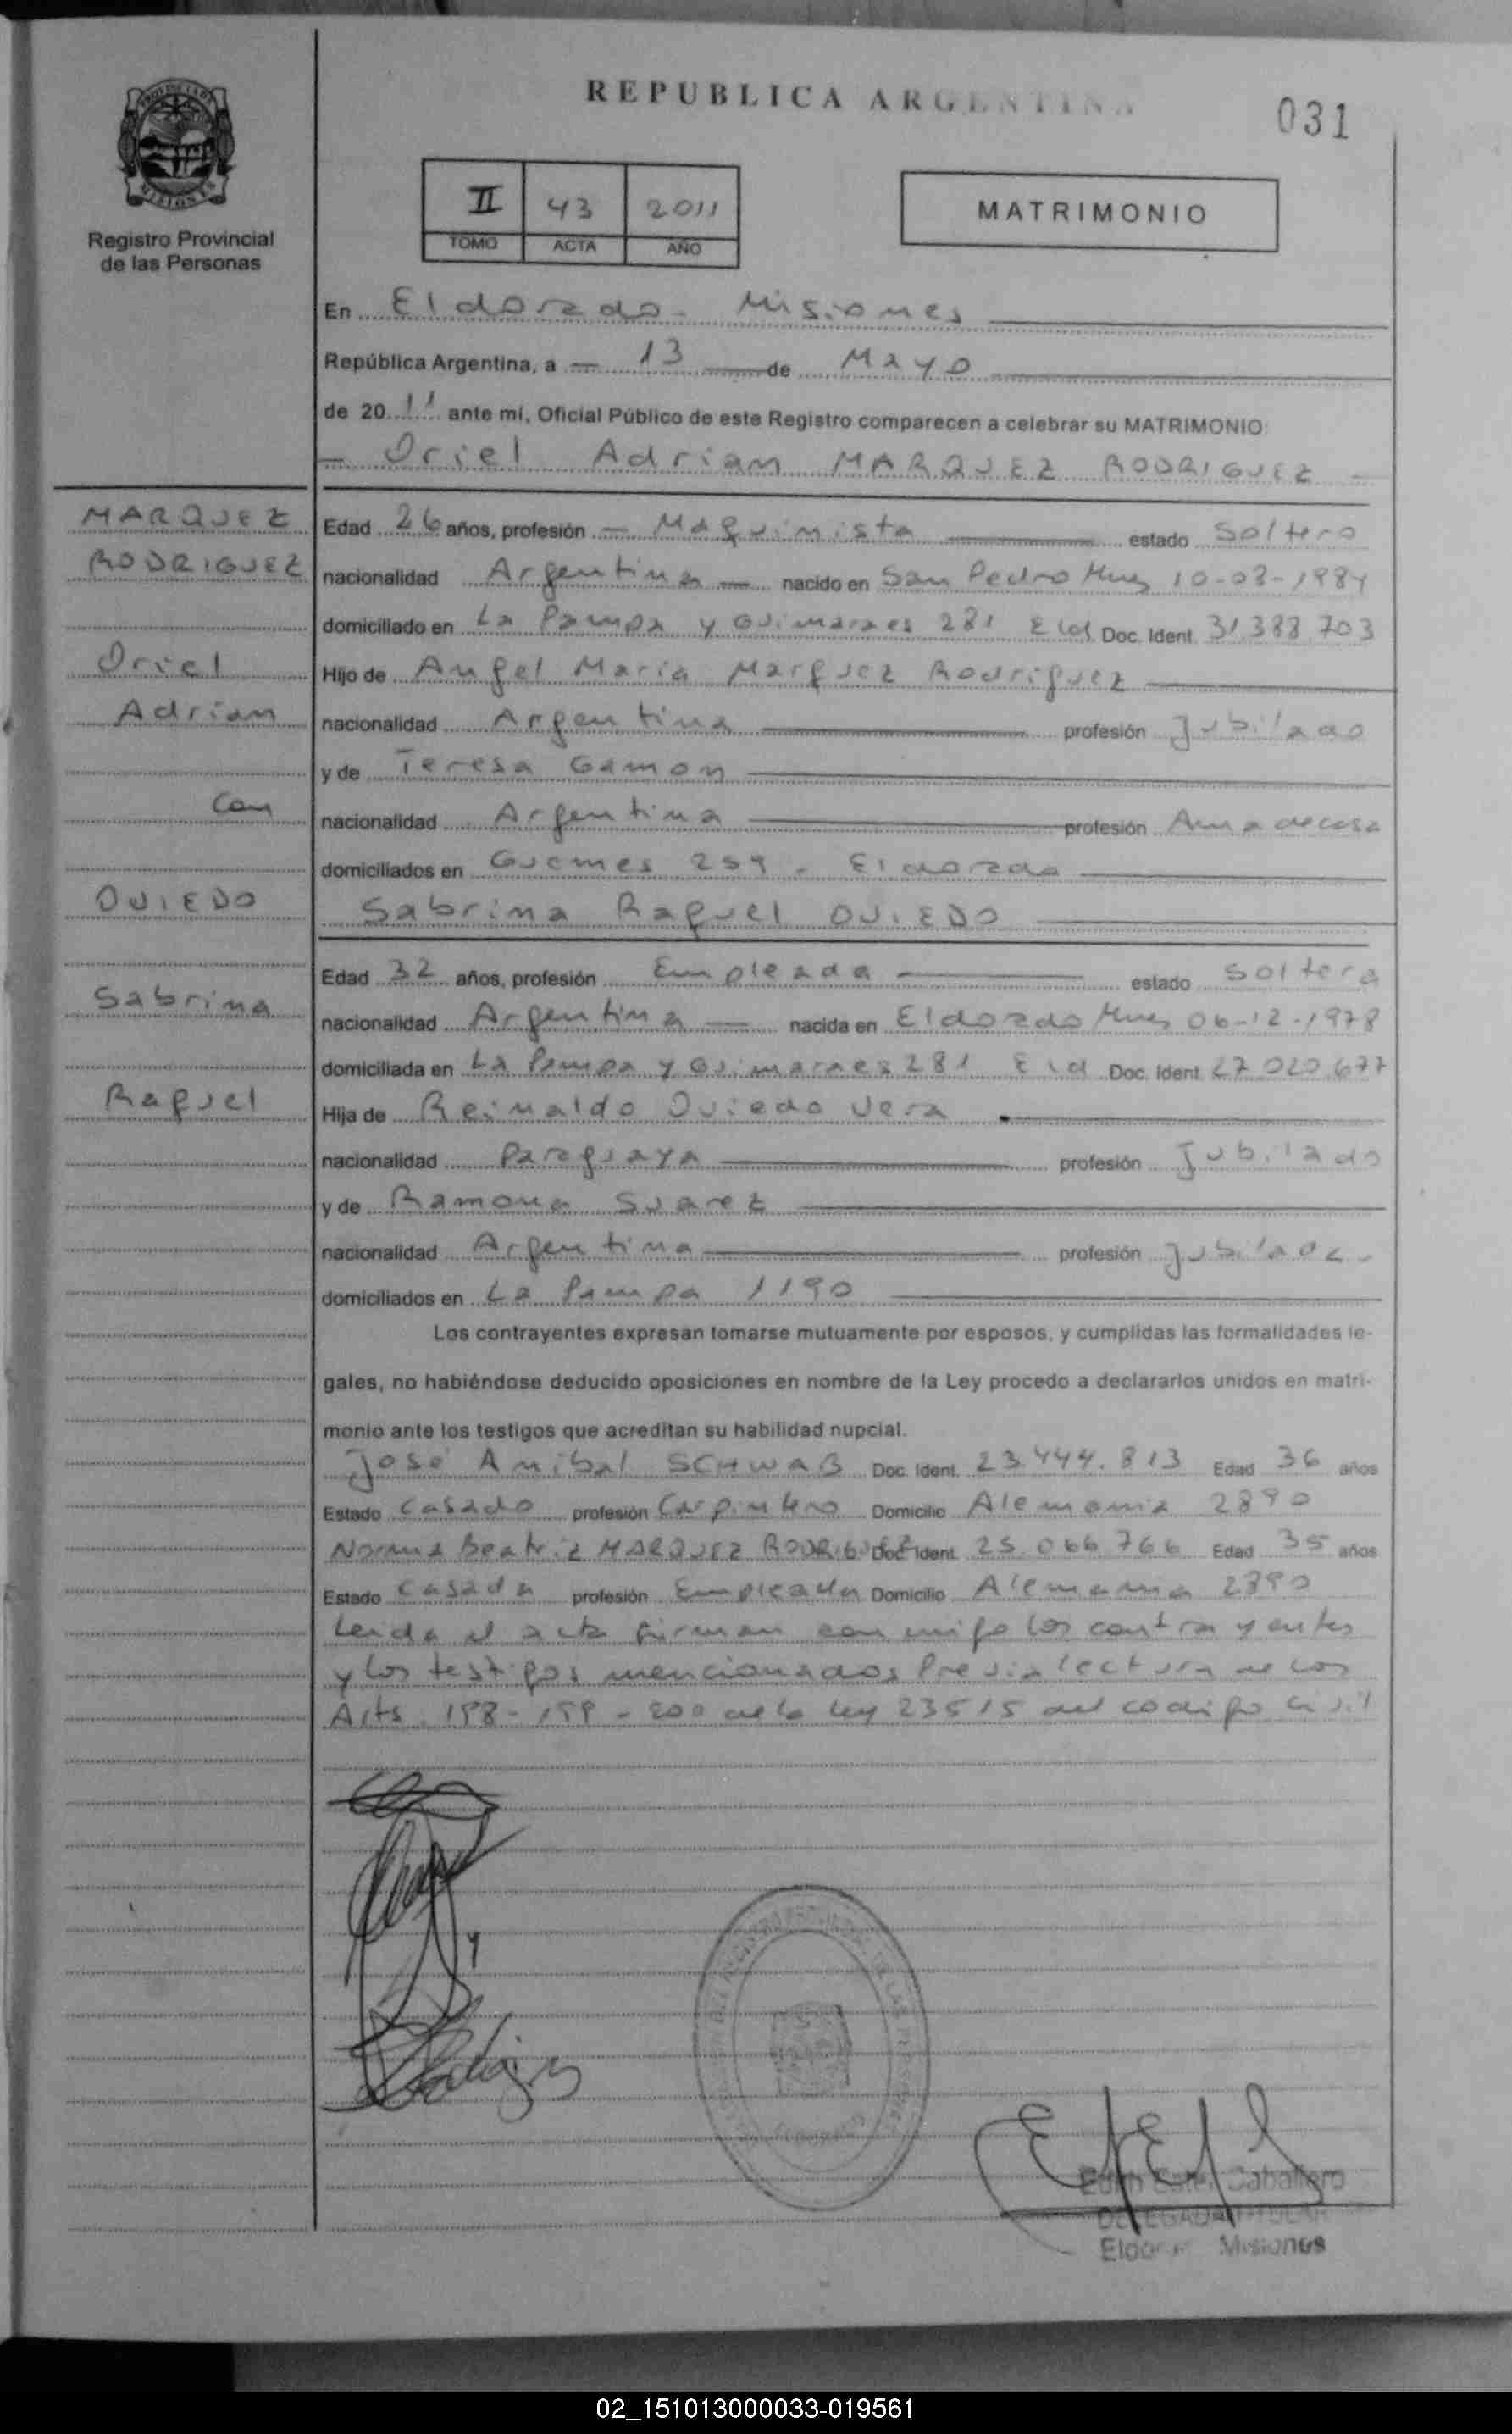 REPUBLICA ARGENTINA
031
PROVINCIA DE
MISIONES
Registro Provincial
de las Personas
II 43 2011
TOMO ACTA AÑO
MATRIMONIO
En Eldorado - Misiones
República Argentina, a 13 de Mayo
de 2011 ante mí, Oficial Público de este Registro comparecen a celebrar su MATRIMONIO:
Oriel Adrian MARQUEZ RODRIGUEZ
MARQUEZ
RODRIGUEZ
Oriel
Adrian
Con
OVIEDO
Sabrina
Raquel
Edad 26 años, profesión Maquinista estado Soltero
nacionalidad Argentina nacido en San Pedro Mnes 10-03-1984
domiciliado en La Pampa y Guimaraes 281 Eld Doc. Ident. 31 383 703
Hijo de Angel Maria Marquez Rodriguez
nacionalidad Argentina profesión Jubilado
y de Teresa Gamon
nacionalidad Argentina profesión Ama de casa
domiciliados en Guemes 259 - Eldorado
Sabrina Raquel OVIEDO
Edad 32 años, profesión Empleada estado Soltera
nacionalidad Argentina nacida en Eldorado Mnes 06-12-1978
domiciliada en La Pampa y Guimaraes 281 Eld Doc. Ident. 27 020 677
Hija de Reinaldo Oviedo Vera
nacionalidad Paraguaya profesión Jubilado
y de Ramona Suarez
nacionalidad Argentina profesión Jubilada
domiciliados en La Pampa 1190
Los contrayentes expresan tomarse mutuamente por esposos, y cumplidas las formalidades le-
gales, no habiéndose deducido oposiciones en nombre de la Ley procedo a declararlos unidos en matri-
monio ante los testigos que acreditan su habilidad nupcial.
José Anibal SCHWAB Doc. Ident. 23.444.813 Edad 36 años
Estado Casado profesión Carpintero Domicilio Alemania 2890
Norma Beatriz MARQUEZ RODRIGUEZ Doc. Ident. 25.066.766 Edad 35 años
Estado Casada profesión Empleada Domicilio Alemania 2890
Leida el acta firman conmigo los contrayentes
y los testigos mencionados Previa lectura de los
Arts. 198 - 199 - 200 de la Ley 23515 del codigo civil
Edith Ester Caballero
DELEGADA TITULAR
Eldorado Misiones
02_151013000033-019561